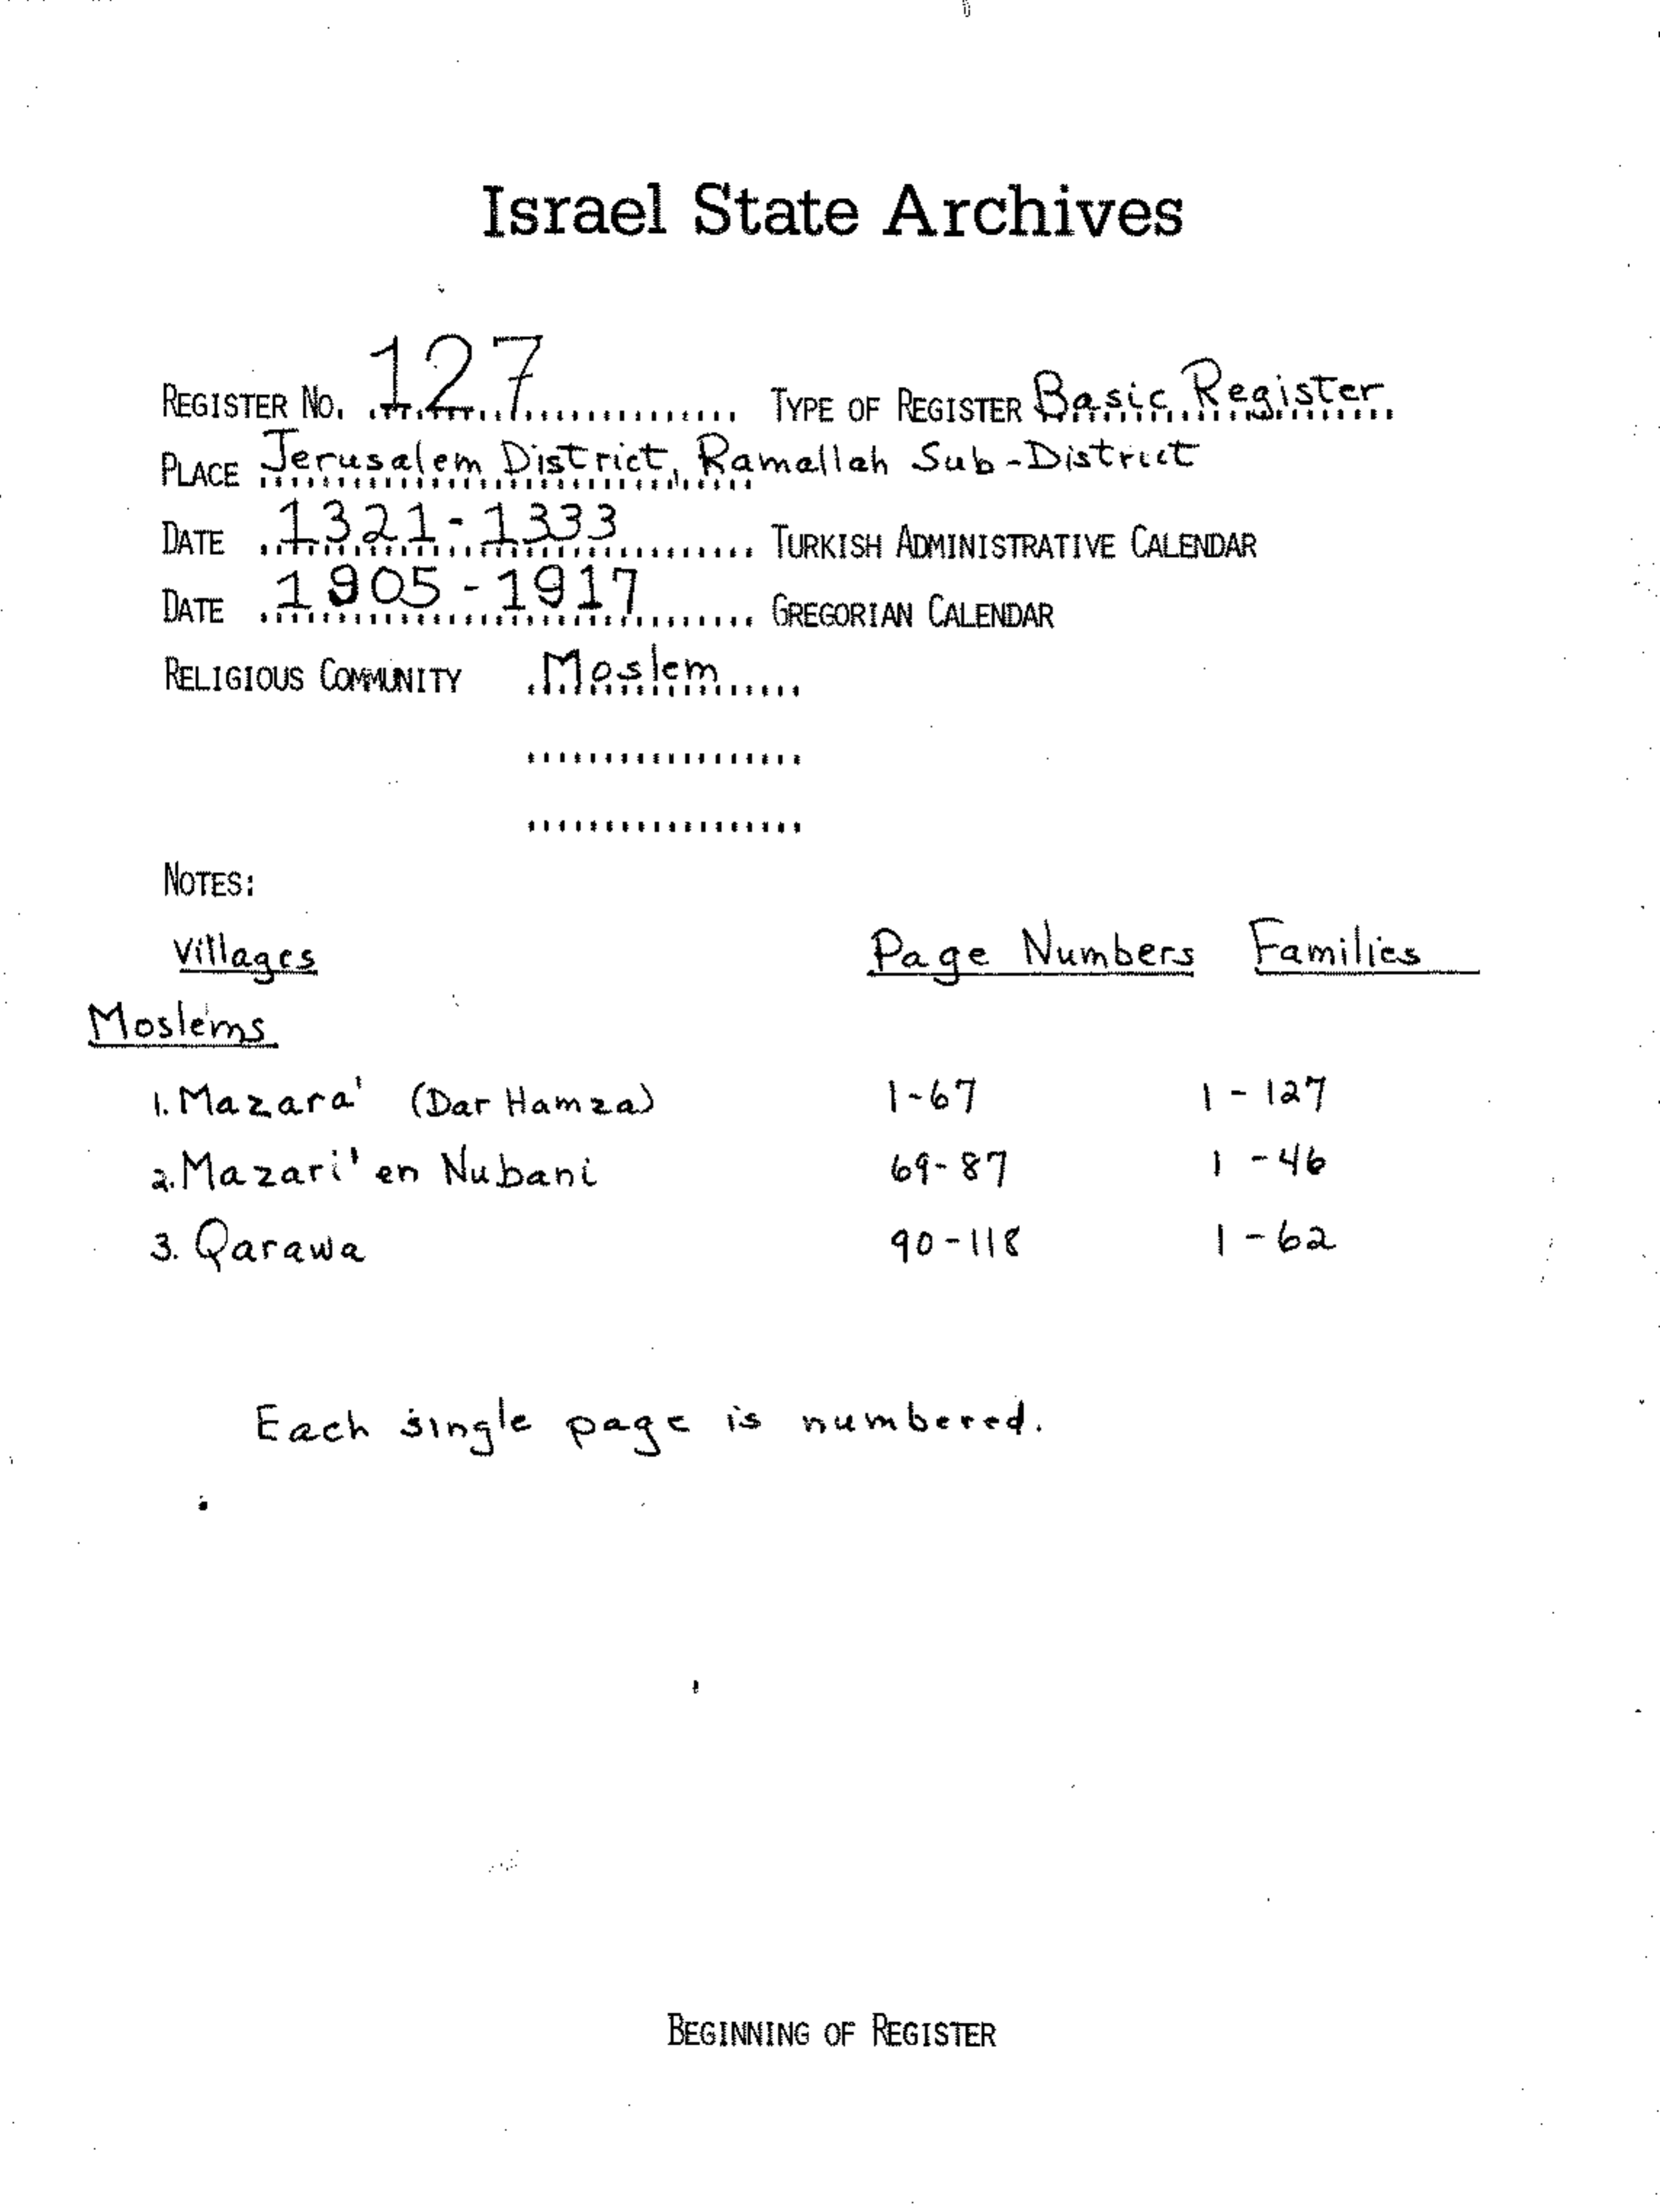 Israel State Archives
REGISTER NO. 127 TYPE OF REGISTER Basic Register
PLACE Jerusalem District, Ramallah Sub-District
DATE 1321-1333 TURKISH ADMINISTRATIVE CALENDAR
DATE 1905-1917 GREGORIAN CALENDAR
RELIGIOUS COMMUNITY Moslem
NOTES:
Villages Page Numbers Families
Moslems
1. Mazara' (Dar Hamza) 1-67 1-127
2. Mazari' en Nubani 69-87 1-46
3. Qarawa 90-118 1-62
Each single page is numbered.
BEGINNING OF REGISTER